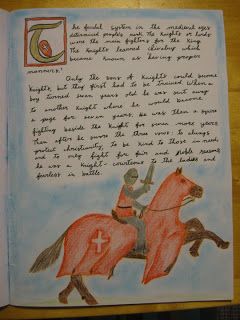 The feudal system in the medieval ages
determined peoples rank. The Knights or lords
were the main fighters for the King.
The Knights learned chivalry which
became known as having proper
manners.
Only the sons of Knights could become
Knights, but they first had to be trained. When a
boy turned seven years old he was sent away
to another Knight where he would become
a page for seven years. He was then a squire
fighting beside the Knight for seven more years.
Then after he swore the three vows: to always
protect christianity, to be kind to those in need,
and to only fight for fair and noble reasons
he was a Knight - courteous to the ladies and
fearless in battle.